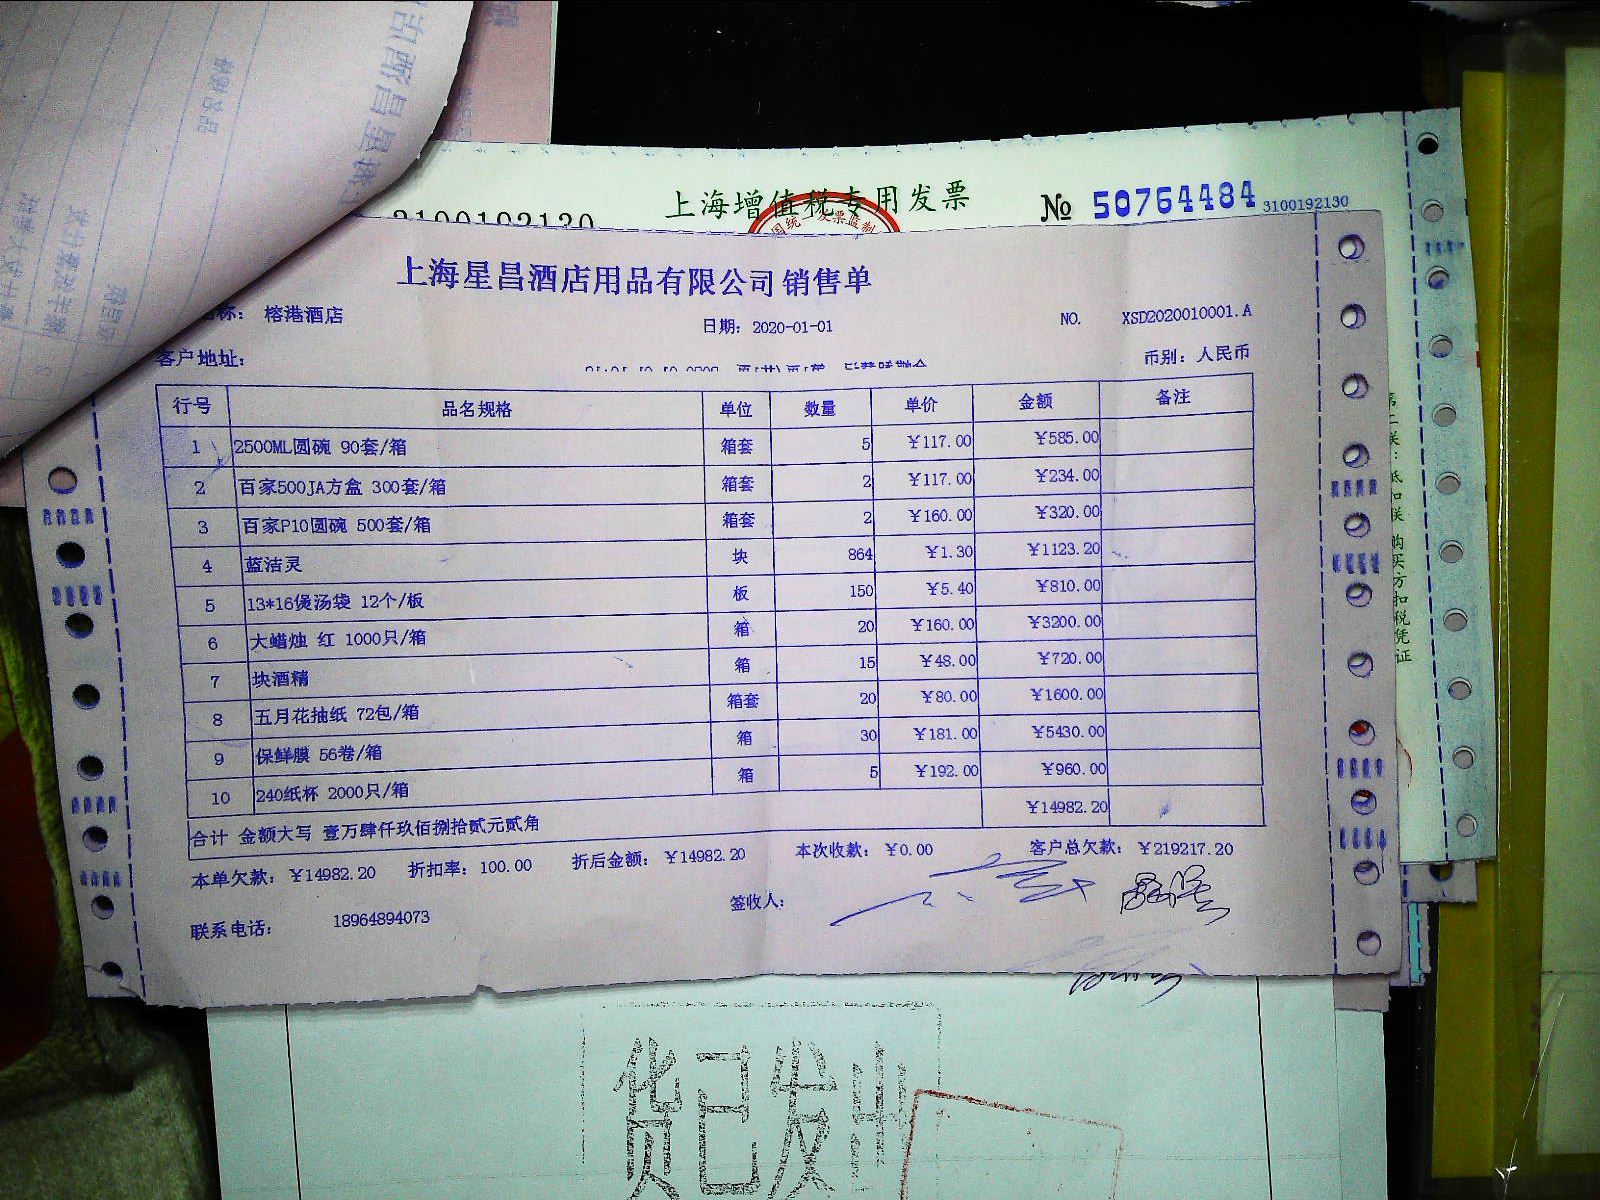 上海增值税专用发票
3100192130
№ 50764484 3100192130
国统一发票监制
上海星昌酒店用品有限公司 销售单
称: 榕港酒店 日期: 2020-01-01 NO. XSD2020010001.A
客户地址: 币别: 人民币
行号 品名规格 单位 数量 单价 金额 备注
1 2500ML圆碗 90套/箱 箱套 5 ¥117.00 ¥585.00
2 百家500JA方盒 300套/箱 箱套 2 ¥117.00 ¥234.00
3 百家P10圆碗 500套/箱 箱套 2 ¥160.00 ¥320.00
4 蓝洁灵 块 864 ¥1.30 ¥1123.20
5 13*16煲汤袋 12个/板 板 150 ¥5.40 ¥810.00
6 大蜡烛 红 1000只/箱 箱 20 ¥160.00 ¥3200.00
7 块酒精 箱 15 ¥48.00 ¥720.00
8 五月花抽纸 72包/箱 箱套 20 ¥80.00 ¥1600.00
9 保鲜膜 56卷/箱 箱 30 ¥181.00 ¥5430.00
10 240纸杯 2000只/箱 箱 5 ¥192.00 ¥960.00
合计 金额大写 壹万肆仟玖佰捌拾贰元贰角 ¥14982.20
本单欠款: ¥14982.20 折扣率: 100.00 折后金额: ¥14982.20 本次收款: ¥0.00 客户总欠款: ¥219217.20
联系电话: 18964894073 签收人:
第二联: 抵扣联 购买方扣税凭证
货已发出